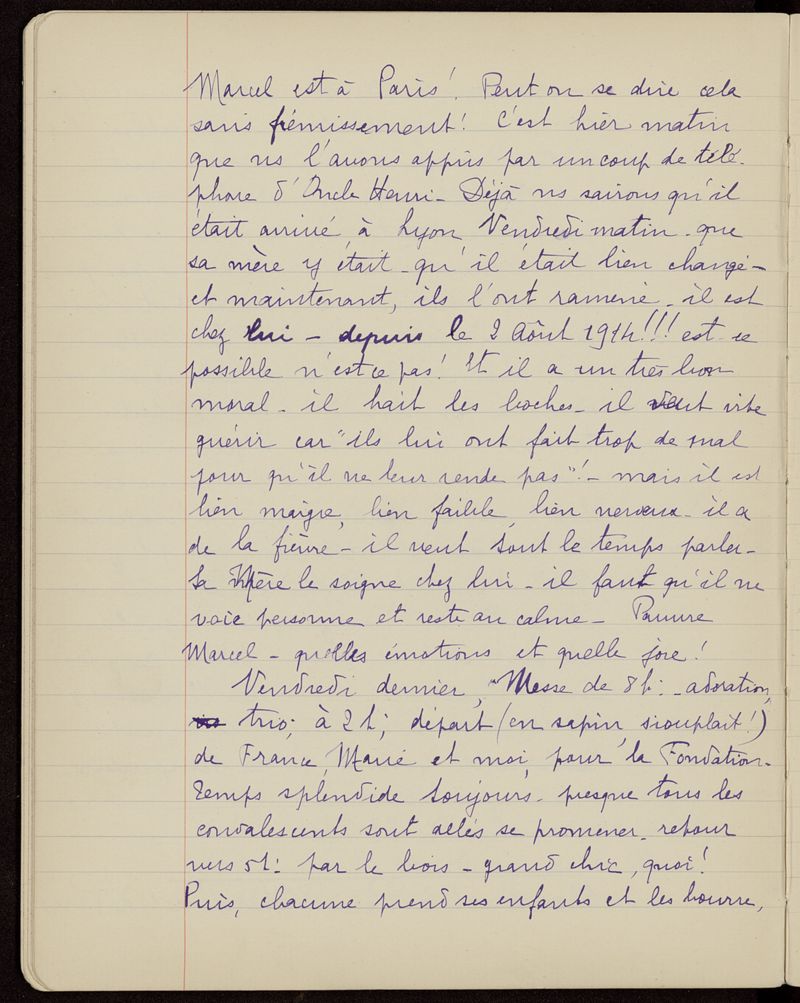 Marcel est à Paris! Peut on se dire cela
sans frémissement! C'est hier matin
que ns l'avons appris par un coup de télé-
phone d'Oncle Henri - Déjà ns savions qu'il
était arrivé à Lyon Vendredi matin - que
sa mère y était - qu'il était bien changé -
et maintenant, ils l'ont ramené - il est
chez lui - depuis le 2 Août 1914!!! est-ce
possible n'est ce pas! Et il a un très bon
moral - il hait les boches - il veut vite
guérir car "ils lui ont fait trop de mal
pour qu'il ne leur rende pas"! - mais il est
bien maigre, bien faible, bien nerveux - il a
de la fièvre - il veut tout le temps parler -
Sa Mère le soigne chez lui - il faut qu'il ne
voie personne et reste au calme - Pauvre
Marcel - quelles émotions et quelle joie!
Vendredi dernier, Messe de 8h: - adoration,
trio; à 2h; départ (en sapin, siouplait!)
de France, Marie et moi, pour la Fondation -
Temps splendide toujours - presque tous les
convalescents sont allés se promener - retour
vers 5h: par le bois - grand chic, quoi!
Puis, chacune prend ses enfants et les bourre,